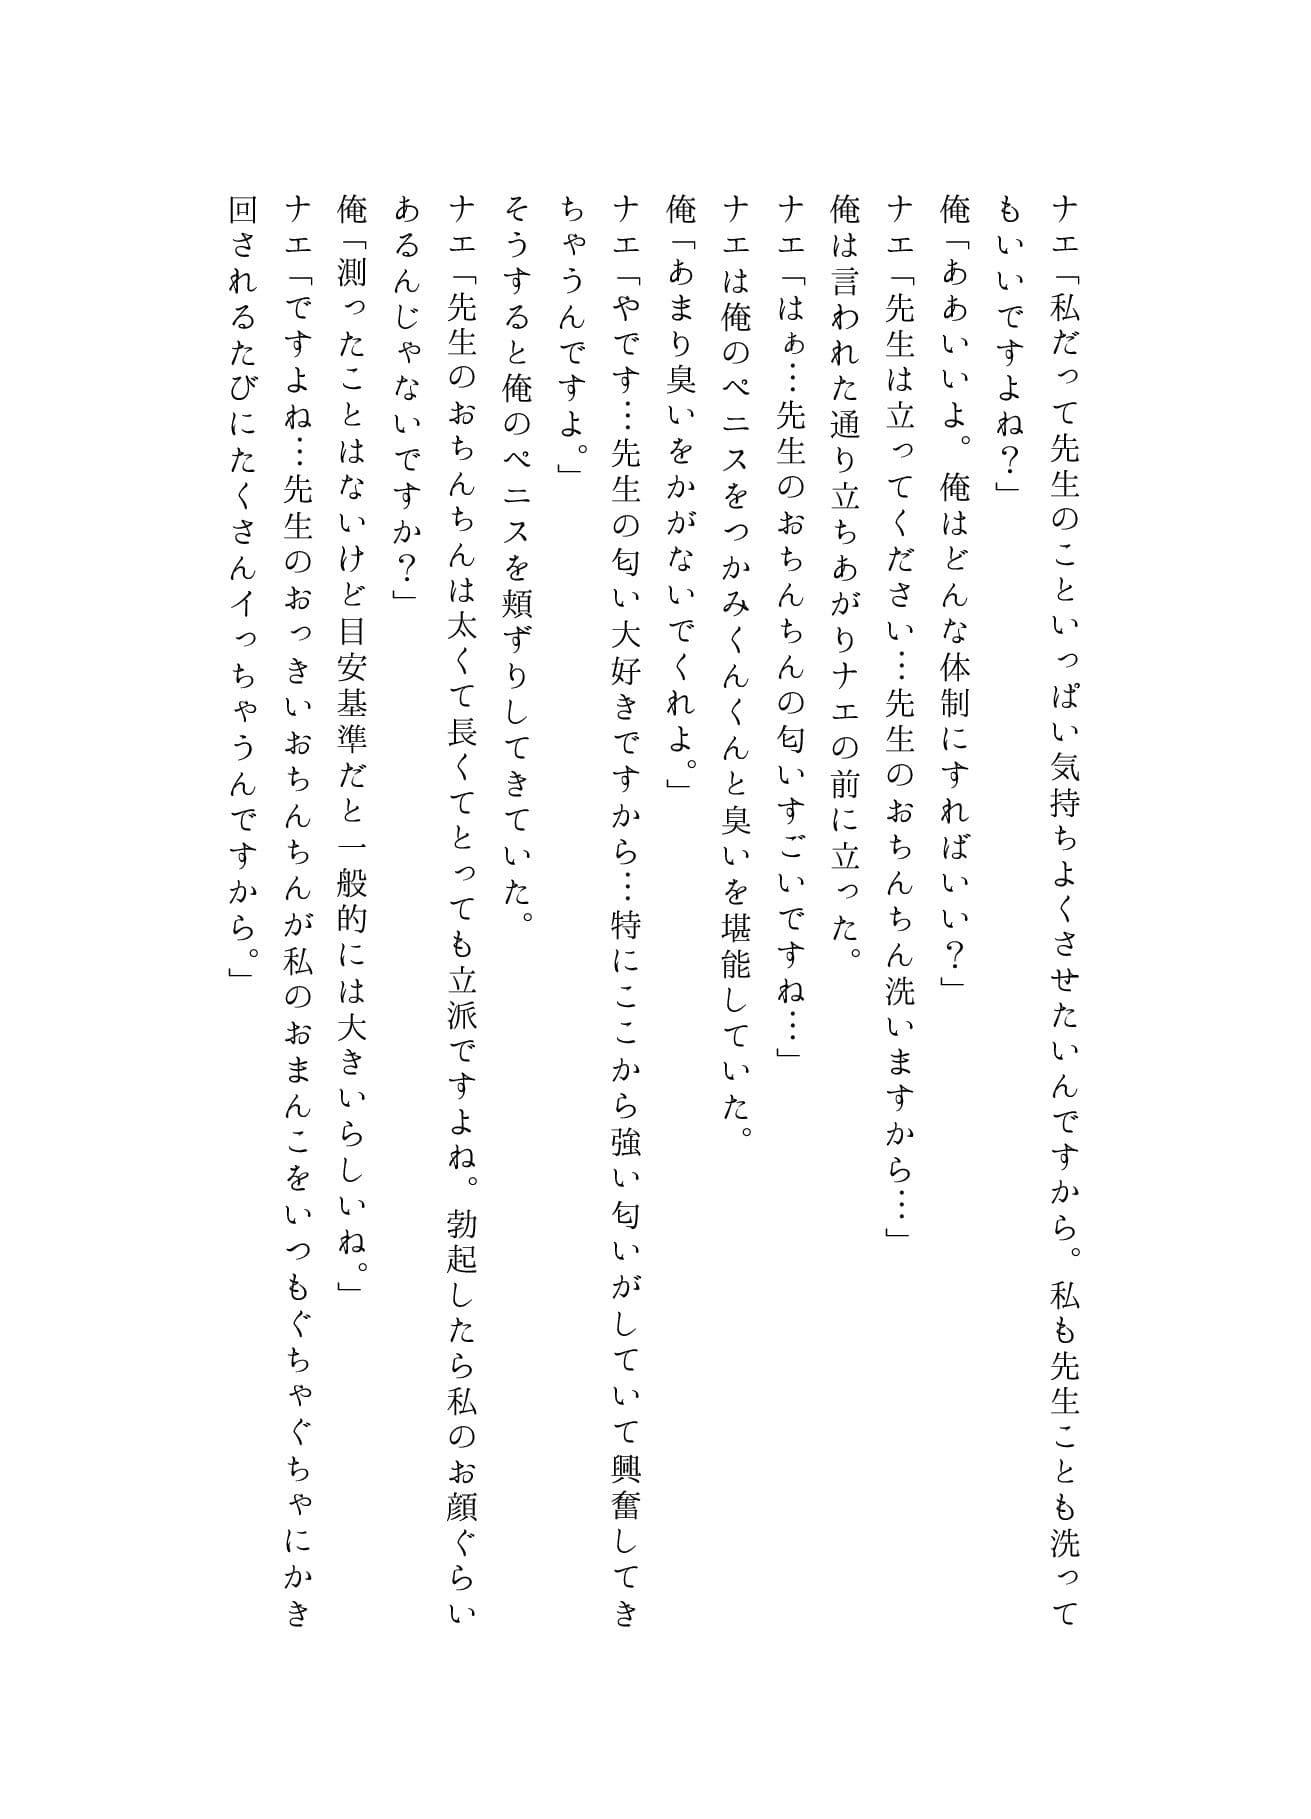 ナエ「私だって先生のこといっぱい気持ちよくさせたいんですから。私も先生ことも洗って
もいいですよね？」
俺「ああいいよ。俺はどんな体制にすればいい？」
ナエ「先生は立ってください…先生のおちんちん洗いますから…」
俺は言われた通り立ちあがりナエの前に立った。
ナエ「はぁ…先生のおちんちんの匂いすごいですね…」
ナエは俺のペニスをつかみくんくんと臭いを堪能していた。
俺「あまり臭いをかがないでくれよ。」
ナエ「やです…先生の匂い大好きですから…特にここから強い匂いがしていて興奮してき
ちゃうんですよ。」
そうすると俺のペニスを頬ずりしてきていた。
ナエ「先生のおちんちんは太くて長くてとっても立派ですよね。勃起したら私のお顔ぐらい
あるんじゃないですか？」
俺「測ったことはないけど目安基準だと一般的には大きいらしいね。」
ナエ「ですよね…先生のおっきいおちんちんが私のおまんこをいつもぐちゃぐちゃにかき
回されるたびにたくさんイっちゃうんですから。」